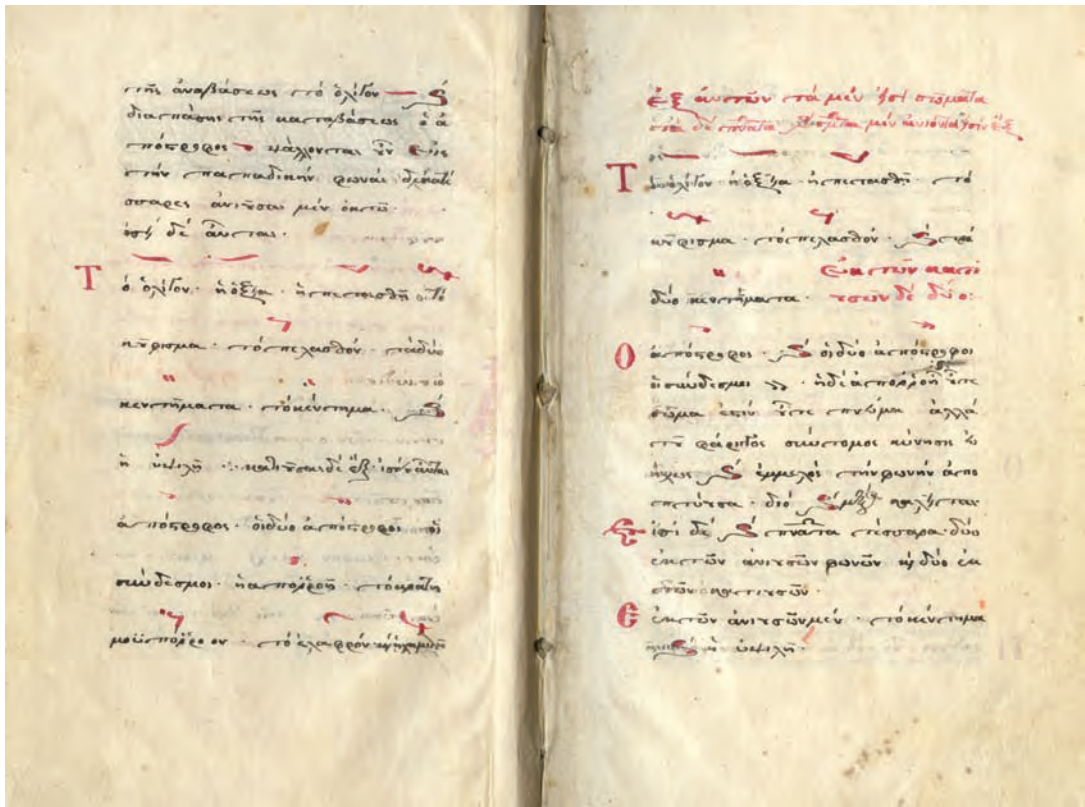 τῆς ἀναβάσεως τὸ ὀλίγον καὶ
διαπάσης τῆς καταβάσεως ὁ ἀ
πόστροφος ψάλλονται οὖν εἰς
τὴν παπαδικὴν φωναὶ δεκατέ
σσαρες ἀνιοῦσαι μὲν ὀκτώ·
εἰσὶ δὲ αὗται·
Τὸ ὀλίγον· ἡ ὀξεῖα· ἡ πεταστὴ· τὸ
κούφισμα· τὸ πελασθόν· τὰ δύο
κεντήματα· τὸ κέντημα· καὶ
ἡ ὑψηλὴ· κατιοῦσαι δὲ ἕξ· εἰσὶν αὗται
ἀπόστροφος· οἱ δύο ἀπόστροφοι οἱ
σύνδεσμοι· ἡ ἀπορροὴ· τὸ κρατη
μοϋπόρροον· τὸ ἐλαφρόν καὶ ἡ χαμηλὴ
ἐξ αὐτῶν τὰ μὲν εἰσὶ σώματα
τὰ δὲ πνεύματα καὶ σώματα μὲν ἀνιόντα εἰσὶν ἕξ
Τὸ ὀλίγον· ἡ ὀξεῖα· ἡ πεταστὴ· τὸ
κούφισμα· τὸ πελασθόν· καὶ τὰ
δύο κεντήματα· ἐκ τῶν κατι
ουσῶν δὲ δύο:
Ὁ ἀπόστροφος· καὶ οἱ δύο ἀπόστροφοι
οἱ σύνδεσμοι· ἡ δὲ ἀπορροὴ οὔτε
σῶμα ἐστὶν οὔτε πνεῦμα ἀλλὰ
τοῦ φάρυγγος σύντομος κίνησις
καὶ ἐμμελῶς τὴν φωνὴν ἀπο
πτύουσα· διὸ καὶ
Εἰσὶ δὲ καὶ πνεύματα τέσσαρα· δύο
ἐκ τῶν ἀνιουσῶν φωνῶν καὶ δύο ἐκ
τῶν κατιουσῶν·
Ἐκ τῶν ἀνιουσῶν μὲν· τὸ κέντημα
καὶ ἡ ὑψηλὴ·